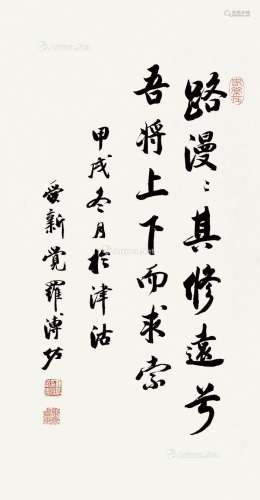 路漫漫其修远兮
吾将上下而求索
甲戌冬月於津沽
爱新觉罗溥佐